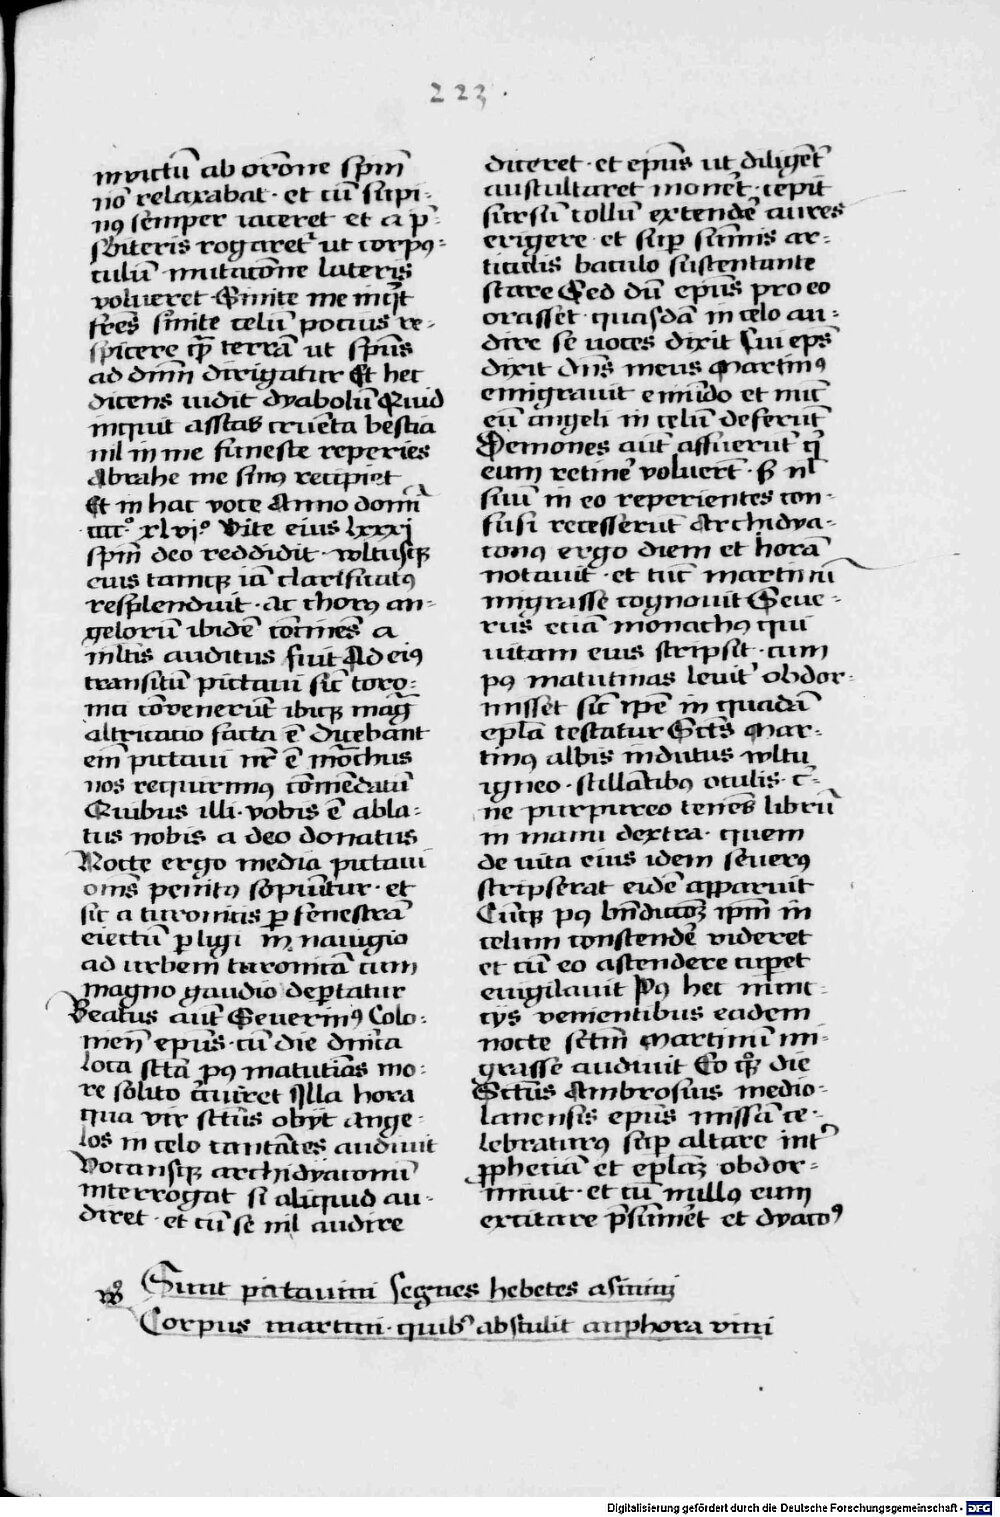 223.
invictū ab orōne spm̄
nō relaxabat · et cū supi-
nꝯ semper iaceret et a p̄-
sbiteris rogaretʳ ut corpꝯ-
culū mutacōne lateris
volueret · Sinite me inqͥt
fr̄es sinite celū pocius re-
spicere qͣꝫ terrā ut spūs
ad dn̄m dirigatur Et hec
dicens uidit dyabolū Quid
inquit asstas cruēta bestia
nil in me funeste reperies
Abrahe me sinꝯ recipiet
Et in hac voce Anno domī
·cccͦ· xlviͦ Vite eius lxxxj
spm̄ deo reddidit · vltusqꝫ
eius tamqꝫ iā clarificatꝯ
resplenduit · ac chorꝯ an-
gelorū ibidē cōcinēs a
ml̄tis auditus fuit Ad eiꝯ
transitū pictaui sic̄ toro-
nici cōvenerūt ibiqꝫ maḡ
altricatio facta ē Dicebant
em̄ pictaui nr̄ ē mōchus
nos requirimꝯ cōmēdatū
Quibus illi · vobis ē abla-
tus nobis a deo donatus
Nocte ergo media pictaui
om̄s penitꝯ sopiūtur · et
sic a turonicis ꝑ fenestrā
eiectū ꝑ ligi in nauigio
ad urbem turonicā cum
magno gaudio deꝑtatur
Beatus aut̄ Seuerinꝯ Colo-
nien̄ ep̄us · cū die dn̄ica
loca sc̄tā pꝯ matutiās mo-
re solito c̄uiret Illa hora
qua vir sc̄tūs obyt Ange-
los in celo cantātes audiuit
Vocansqꝫ archidyaconū
interrogat si aliquid au-
diret · et cū se nil audire
diceret · et ep̄us ut diligēt̉
auscultaret monet̉ · cepit
sursū collū extendē aures
erigere et suꝑ sūmis ar-
ticulis baculo sustentante
stare Sed dū ep̄us pro eo
orasset · quasdā in celo au-
dire se uoces dixit Cui ep̄s
dixit dn̄s meus Martinꝯ
emigrauit e mūdo et nūc
eū angeli in celū deferūt
Demones aut̄ affuerūt qͥ
eum retinē voluerūt · s̄ nl̄
suū in eo reperientes con-
fusi recesserūt Archidya-
conꝯ ergo diem et horā
notauit · et tūc martinū
migrasse cognouit Seue-
rus eciā monachꝯ qui
uitam eius scripsit · cum
pꝯ matutinas leuit̉ obdor-
misset sic̄ ip̄e in quadā
ep̄la testatur Sctūs Mar-
tinꝯ albis indutus vltu
igneo · stillātibꝯ oculis · c̄-
ne purpureo tenēs librū
in manu dextra · quem
de uita eius idem seuerꝯ
scripserat eidē apparuit
Cūqꝫ pꝯ bn̄dictōꝫ ip̄m in
celum conscendē videret
et cū eo ascendere cuꝑet
euigilauit Pꝯ hec nūnc-
ijs venientibus eadem
nocte sctm̄ Martinū mi-
grasse audiuit Eo qͦꝫ die
Sctūs Ambrosius medio-
lanensis ep̄us missā ce-
lebraturꝯ suꝑ altare int̉
ꝓphetiā et ep̄laꝫ obdor-
miuit · et cū nullꝯ eum
excitare p̄sūmēt et dyacoꝯ
Sunt pictauini segnes hebetes asinini
Corpus martini · quibꝯ abstulit anphora vini
Digitalisierung gefördert durch die Deutsche Forschungsgemeinschaft - DFG